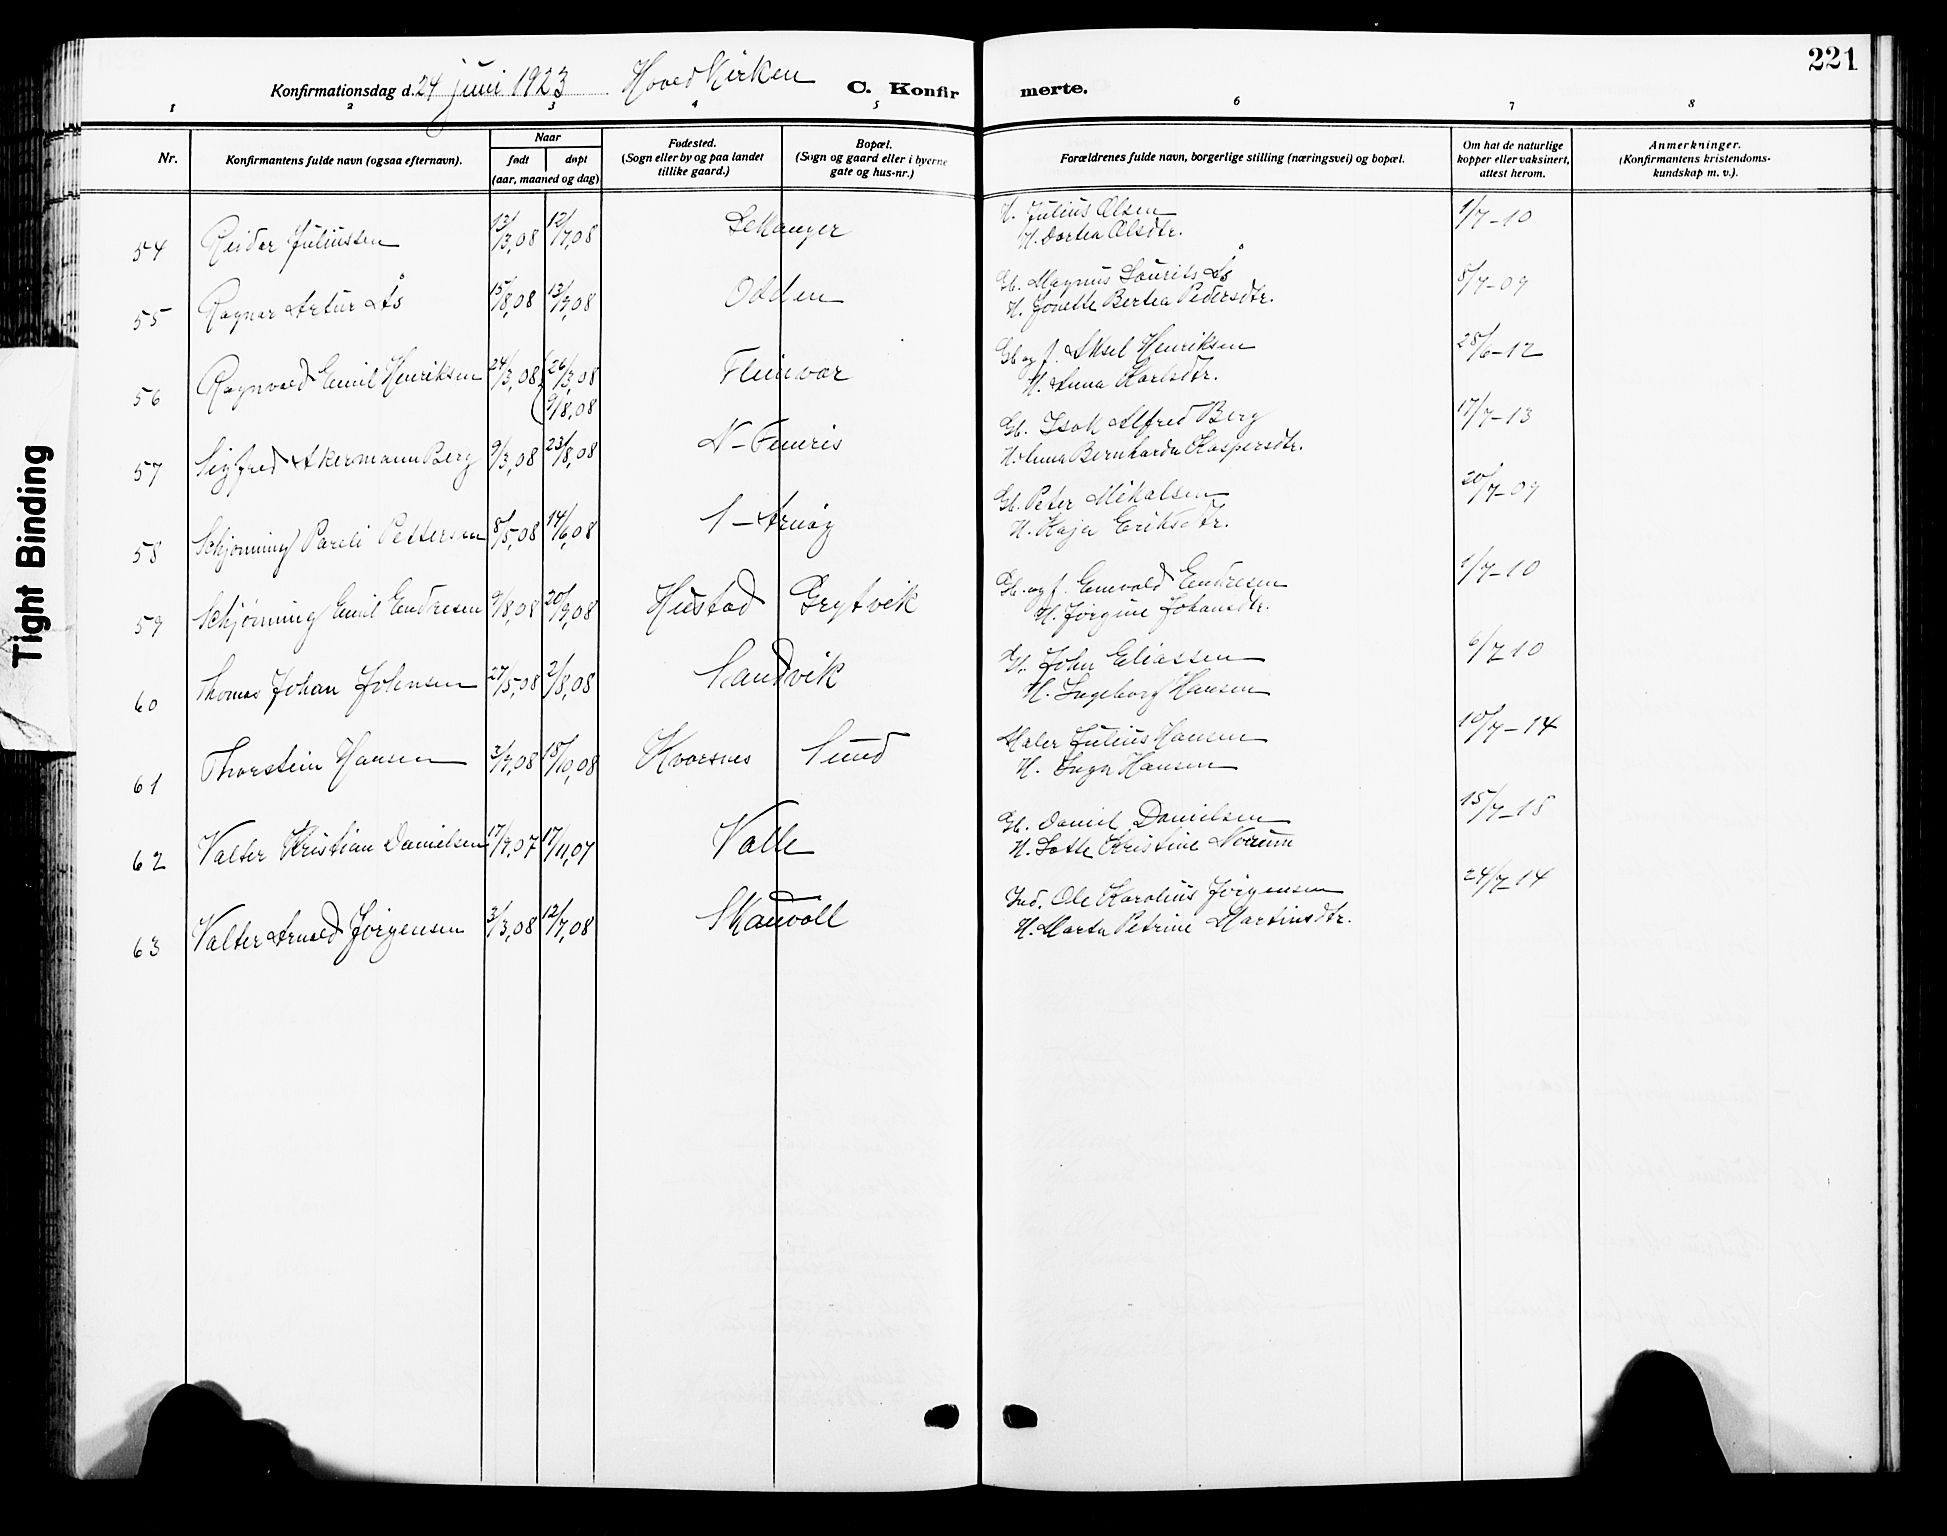 221
Konfirmationsdag d. 24 juni 1923 Hovedkirken C. Konfirmerte.
1 2 3 4 5 6 7 8
Nr.
Konfirmantens fulde navn (ogsaa efternavn).
Naar
født døpt
(aar, maaned og dag)
Fødested.
(Sogn eller by og paa landet
tillike gaard.)
Bopæl.
(Sogn og gaard eller i byerne
gate og hus-nr.)
Forældrenes fulde navn, borgerlige stilling (næringsvei) og bopæl.
Om hat de naturlige
kopper eller vaksinert,
attest herom.
Anmerkninger.
(Konfirmantens kristendoms-
kundskap m. v.).
54 Reidar Juliussen 13/3,08 12/7,08 Selkanger Julius Olsen 1/7-10
H. Dortea Olsdtr.
55 Ragnar Artur Ås 15/8,08 13/9,08 Odden Gb. Magnus Laurits Ås 5/7-09
H. Jonette Bertea Pedersdtr.
56 Ragnvald Emil Henriksen 24/3,08 26/3,08 Fleinvær Gb og f. Aksel Henriksen 28/6-12
9/8,08 H. Anna Karlsdtr.
57 Sigfred Akermann Berg 9/3,08 23/8,08 N-Femris Gb. Isak Alfred Berg 17/7-13
H. Anna Bernharda Kaspersdtr.
58 Schjønning Pareli Pettersen 8/5,08 14/6,08 S-Arnøy Gb. Peter Mikalsen 20/7-09
H. Kaja Eriksdtr.
59 Schjønning Emil Endresen 9/8,08 20/9,08 Hustad Grytvik Gb. og f. Emvald Endresen 1/7-10
H. Jørgine Johansdtr.
60 Thomas Johan Johnsen 27/5,08 2/8,08 Sandvik Gb. John Eliassen 6/7 10
H. Ingeborg Hansen
61 Thorstein Hansen 3/9,08 18/10,08 Kvarsnes Sund Maler Julius Hansen 10/7-14
H. Inga Hansen
62 Valter Kristian Danielsen 17/9,07 17/11,07 Valle Gb. Daniel Danielsen 15/7-18
H. Lotte Kristine Norum
63 Valter Arnold Jørgensen 3/3,08 12/7,08 Skauvoll Ind. Ole Karolius Jørgensen 24/7-14
H. Marta Petrine Martinsdtr.
Tight Binding